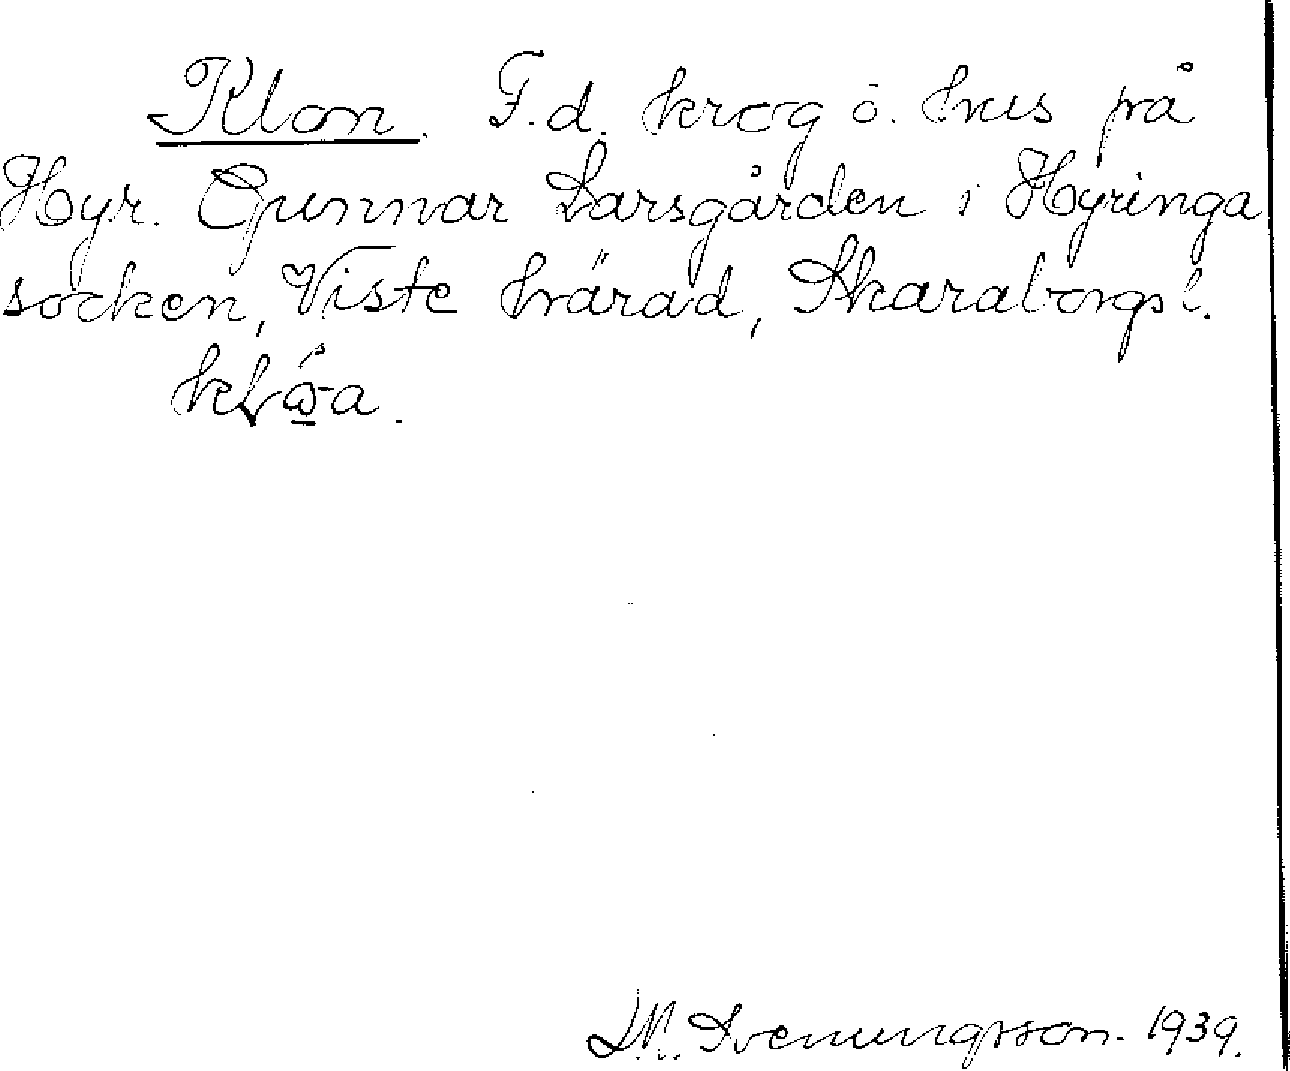 Klon. F.d. krog o. hus på
Hyr. Gunnar Larsgården i Hyringa
socken, Viste härad, Skaraborgs l.
Svenungsson. 1939.